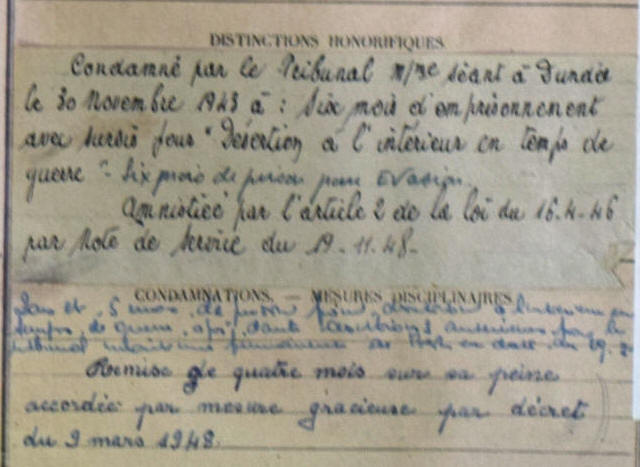 DISTINCTIONS HONORIFIQUES
Condamné par le Tribunal m/me séant à Dundee
le 30 Novembre 1943 à : Six mois d'emprisonnement
avec sursis pour "Désertion à l'intérieur en temps de
guerre" - Six mois de prison pour Evasion.
Amnistiée par l'article 2 de la loi du 16-4-46
par Note de Service du 19-11-48-
CONDAMNATIONS. — MESURES DISCIPLINAIRES
et 5 mois de prison pour désertion à l'intérieur en
temps de guerre,
tribunal maritime permanent de en date du 19
Remise de quatre mois sur sa peine
accordée par mesure gracieuse par décret
du 9 mars 1948.